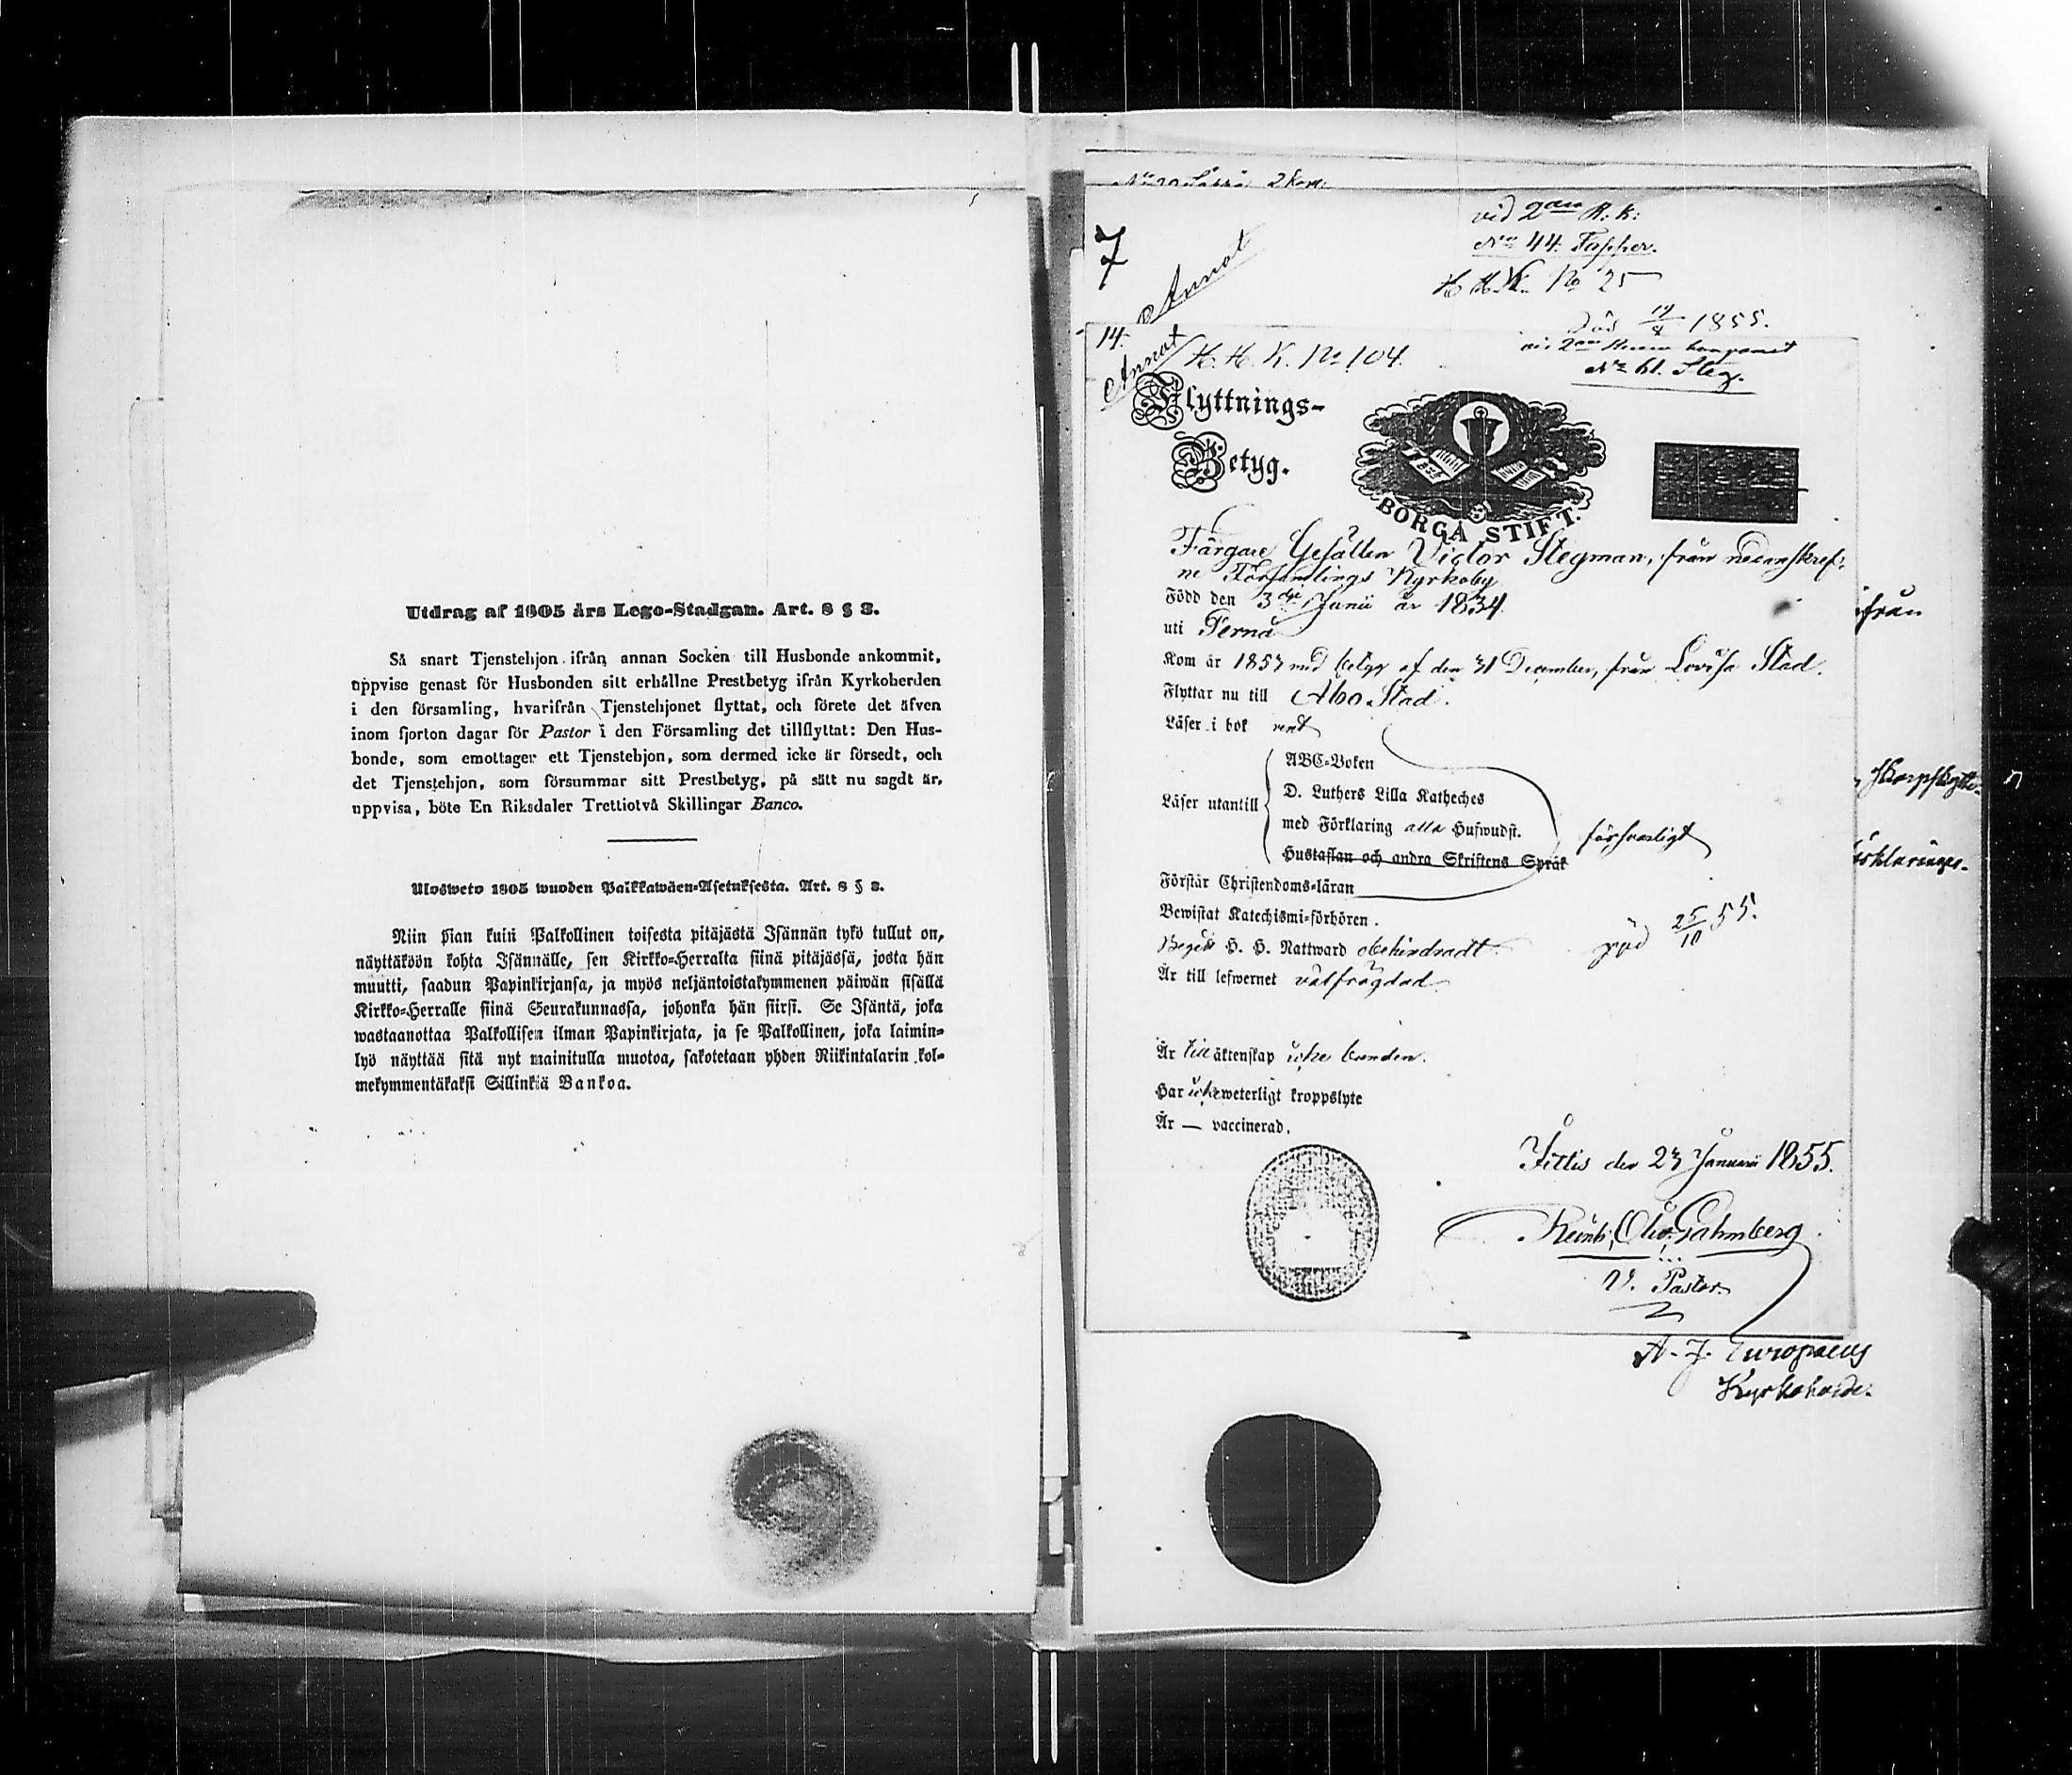 Utdrag af 1805 års Lego-Stadgan. Art. 8 § 3.
Så snart Tjenstehjon ifrån annan Socken till Husbonde ankommit,
uppvise genast för Husbonden sitt erhållne Prestbetyg ifrån Kyrkoherden
i den församling, hvarifrån Tjenstehjonet flyttat, och förete det äfven
inom fjorton dagar för Pastor i den Församling det tillflyttat: Den Hus-
bonde, som emottager ett Tjenstehjon, som dermed icke är försedt, och
det Tjenstehjon, som försummar sitt Prestbetyg, på sätt nu sagdt är,
uppvisa, böte En Riksdaler Trettiotvå Skillingar Banco.
Ulosweto 1805 wuoden Palkkawäen-Asetuksesta. Art. 8 § 3.
Niin pian kuin Palkollinen toisesta pitäjästä Isännän tykö tullut on,
näyttäköön kohta Isännälle, sen Kirkko-Herralta siinä pitäjässä, josta hän
muutti, saadun Papinkirjansa, ja myös neljäntoistakymmenen päiwän sisällä
Kirkko-Herralle siinä Seurakunnassa, johonka hän siirsi. Se Isäntä, joka
wastaanottaa Palkollisen ilman Papinkirjata, ja se Palkollinen, joka laimin-
lyö näyttää sitä nyt mainitulla muotoa, sakotetaan yhden Riikintalarin kol-
mekymmentäkaksi Sillinkiä Bankoa.
vid 2an R. K:
No 44. Tapper.
7
Annot
H. H. K. No 25
14.
Död 19/8 1855.
Annot
H. H. K. No 104.
No 61. Steg.
Flyttnings-
Betyg.
BORGÅ STIFT.
Färgare Gesällen Victor Stegman, från nedanskref-
ne Församlings Kyrkoby
Född den 3dje Junii år 1834
uti Pernå
ifrån
Kom år 1853 med betyg af den 31 December, från Lovisa Stad.
Flyttar nu till Åbo Stad.
Läser i bok rent
ABC-Boken
D. Luthers Lilla Katheches
Läser utantill
med Förklaring alla Hufwudst.
försvarligt
Hustaflan och andra Skriftens Språk
Förstår Christendoms-läran
Bewistat Katechismi-förhören.
Begått H. H. Nattward obehindradt
25/10 55.
Är till lefwernet välfrägdad
Är till äktenskap icke bunden.
Har icke weterligt kroppslyte
Är — vaccinerad.
Ittis den 23 Januarii 1855.
Reinh. Olid. Gahmberg
V. Pastor.
A. J. Europaeus
Kyrkoherde.